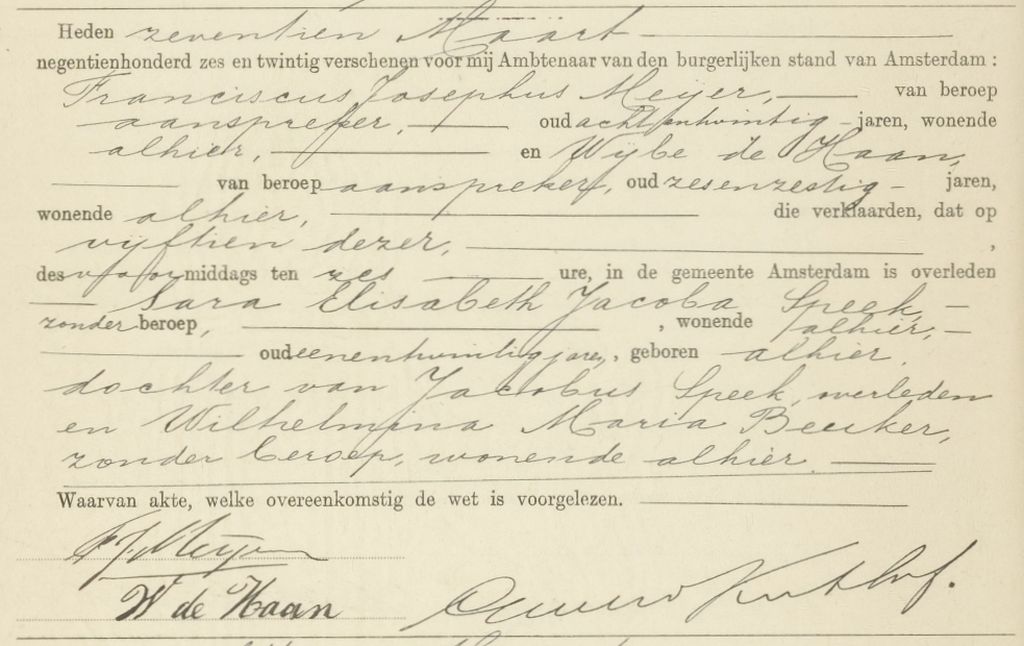 Heden zeventien Maart
negentienhonderd zes en twintig verschenen voor mij Ambtenaar van den burgerlijken stand van Amsterdam :
Franciscus Josephus Meijer, van beroep
aanspreker, oud achtentwintig jaren, wonende
alhier, en Wijbe de Haan,
van beroep aanspreker, oud zesenzestig jaren,
wonende alhier, die verklaarden, dat op
vijftien dezer, ,
des voormiddags ten zes ure, in de gemeente Amsterdam is overleden
Sara Elisabeth Jacoba Speek,
zonder beroep, , wonende alhier,
oud eenentwintig jaren, , geboren alhier,
dochter van Jacobus Speek, overleden
en Wilhelmina Maria Beuker,
zonder beroep, wonende alhier.
Waarvan akte, welke overeenkomstig de wet is voorgelezen.
F J Meijer
W de Haan